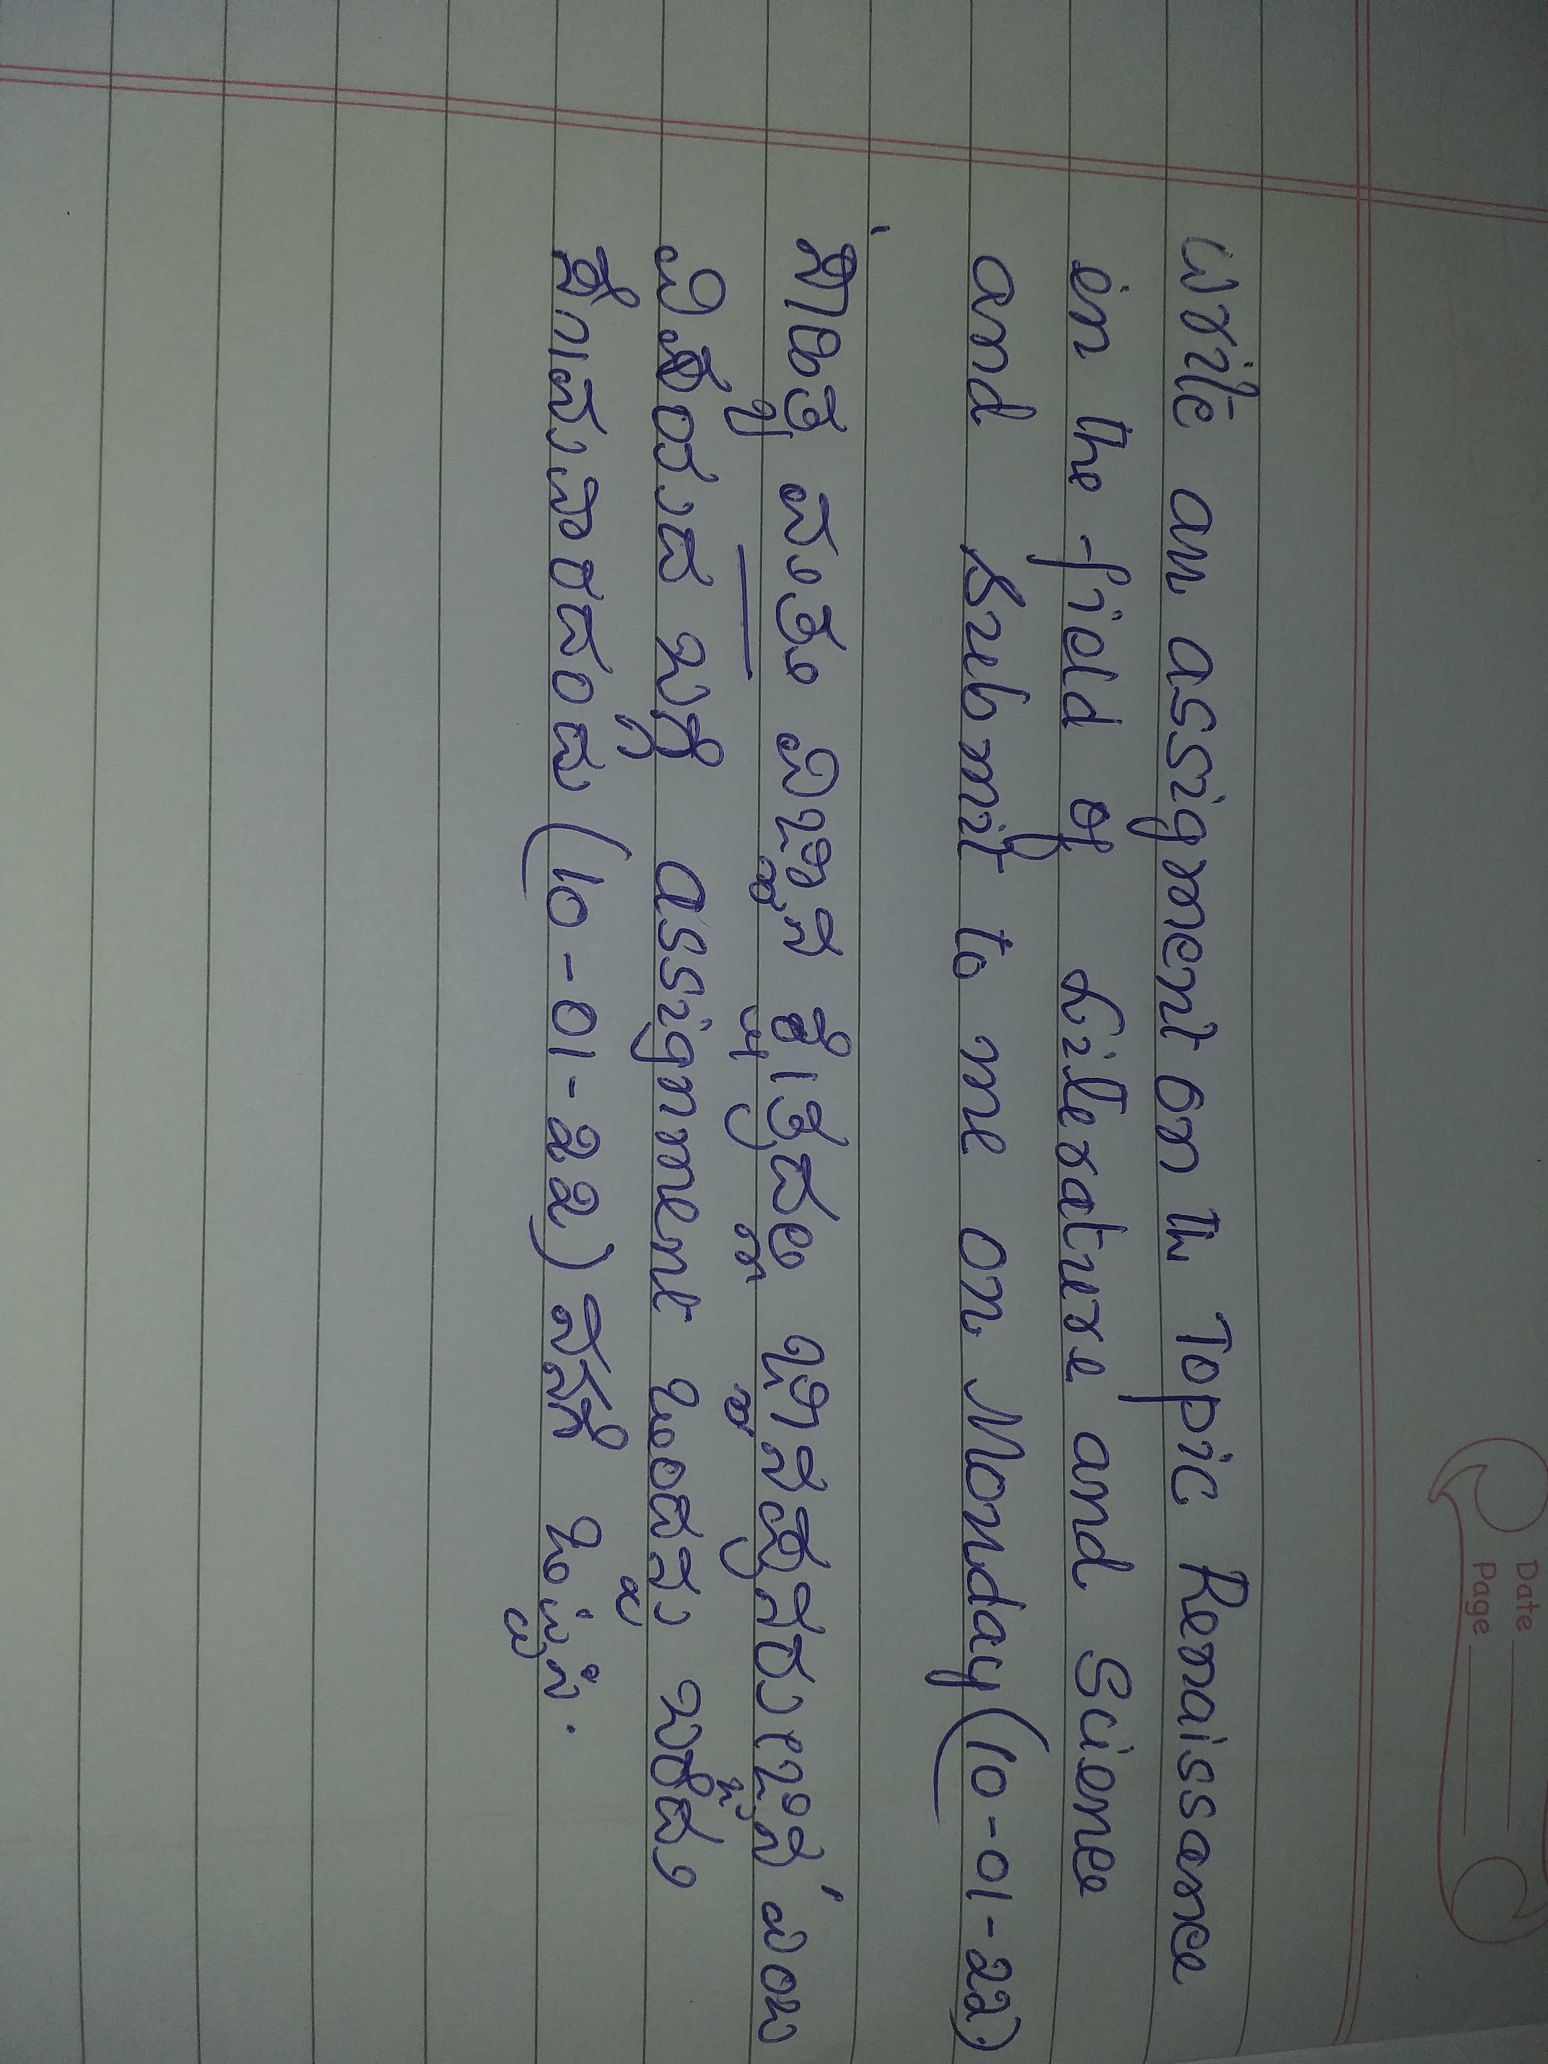 Date
Page
Write an assignment on the Topic Renaissance
in the field of Literature and Science
and submit to me on Monday (10-01-22)
ಸಾಹಿತ್ಯ ಮತ್ತು ವಿಜ್ಞಾನ ಕ್ಷೇತ್ರದಲ್ಲಿ ಜ್ಞಾನಪುನರುಜ್ಜೀವನ ಎಂಬ
ವಿಷಯದ ಬಗ್ಗೆ assignment ಒಂದನ್ನು ಬರೆದು
ಸೋಮವಾರದಂದು (10-01-22) ನನಗೆ ಒಪ್ಪಿಸಿ.